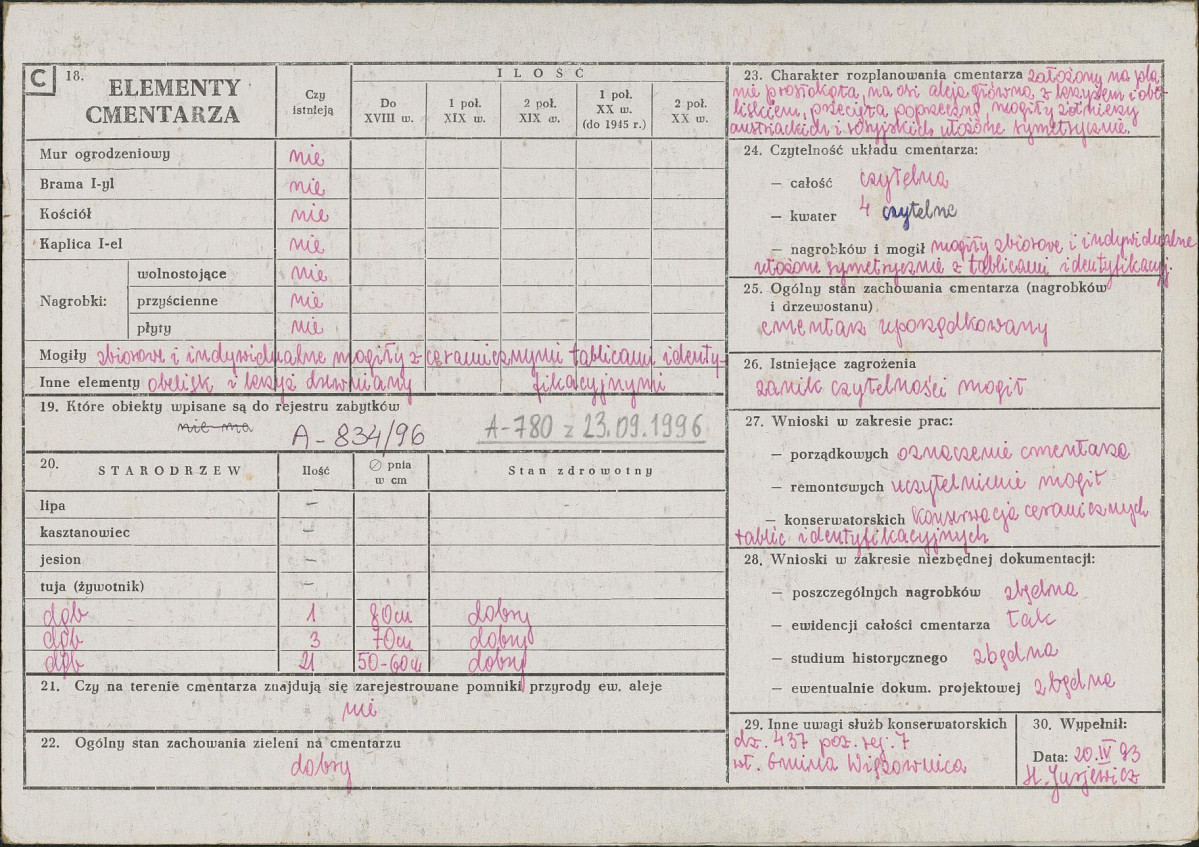 C 18. ELEMENTY CMENTARZA
Czy istnieją
ILOŚĆ
Do XVIII w.
1 poł. XIX w.
2 poł. XIX w.
1 poł. XX w. (do 1945 r.)
2 poł. XX w.
Mur ogrodzeniowy nie
Brama I-yl nie
Kościół nie
Kaplica I-el nie
Nagrobki:
wolnostojące nie
przyścienne nie
płyty nie
Mogiły zbiorowe i indywidualne mogiły z ceramicznymi tablicami identy-
Inne elementy obelisk i krzyż drewniany fikacyjnymi
19. Które obiekty wpisane są do rejestru zabytków
nie ma A-834/96 A-780 z 23.09.1996
20. STARODRZEW Ilość ∅ pnia w cm Stan zdrowotny
lipa —
kasztanowiec —
jesion —
tuja (żywotnik) —
dąb 1 80cm dobry
dąb 3 70cm dobry
dąb 21 50-60cm dobry
21. Czy na terenie cmentarza znajdują się zarejestrowane pomniki przyrody ew. aleje
nie
22. Ogólny stan zachowania zieleni na cmentarzu
dobry
23. Charakter rozplanowania cmentarza założony na pla-
nie prostokąta, na osi aleja główna z krzyżem i obe-
liskiem, przecięta poprzeczną, mogiły żołnierzy
austriackich i rosyjskich ułożone symetrycznie.
24. Czytelność układu cmentarza:
— całość czytelna
— kwater 4 czytelne
— nagrobków i mogił mogiły zbiorowe i indywidualne
ułożone symetrycznie z tablicami identyfikacyj.
25. Ogólny stan zachowania cmentarza (nagrobków
i drzewostanu)
cmentarz uporządkowany
26. Istniejące zagrożenia
zanik czytelności mogił
27. Wnioski w zakresie prac:
— porządkowych oznaczenie cmentarza
— remontowych uczytelnienie mogił
— konserwatorskich konserwacja ceramicznych
tablic identyfikacyjnych
28. Wnioski w zakresie niezbędnej dokumentacji:
— poszczególnych nagrobków zbędna
— ewidencji całości cmentarza tak
— studium historycznego zbędna
— ewentualnie dokum. projektowej zbędna
29. Inne uwagi służb konserwatorskich
dz. 437 poz. rej. 7
wł. Gmina Wiązownica
30. Wypełnił:
Data: 20.IV 93
H. Jurjewicz